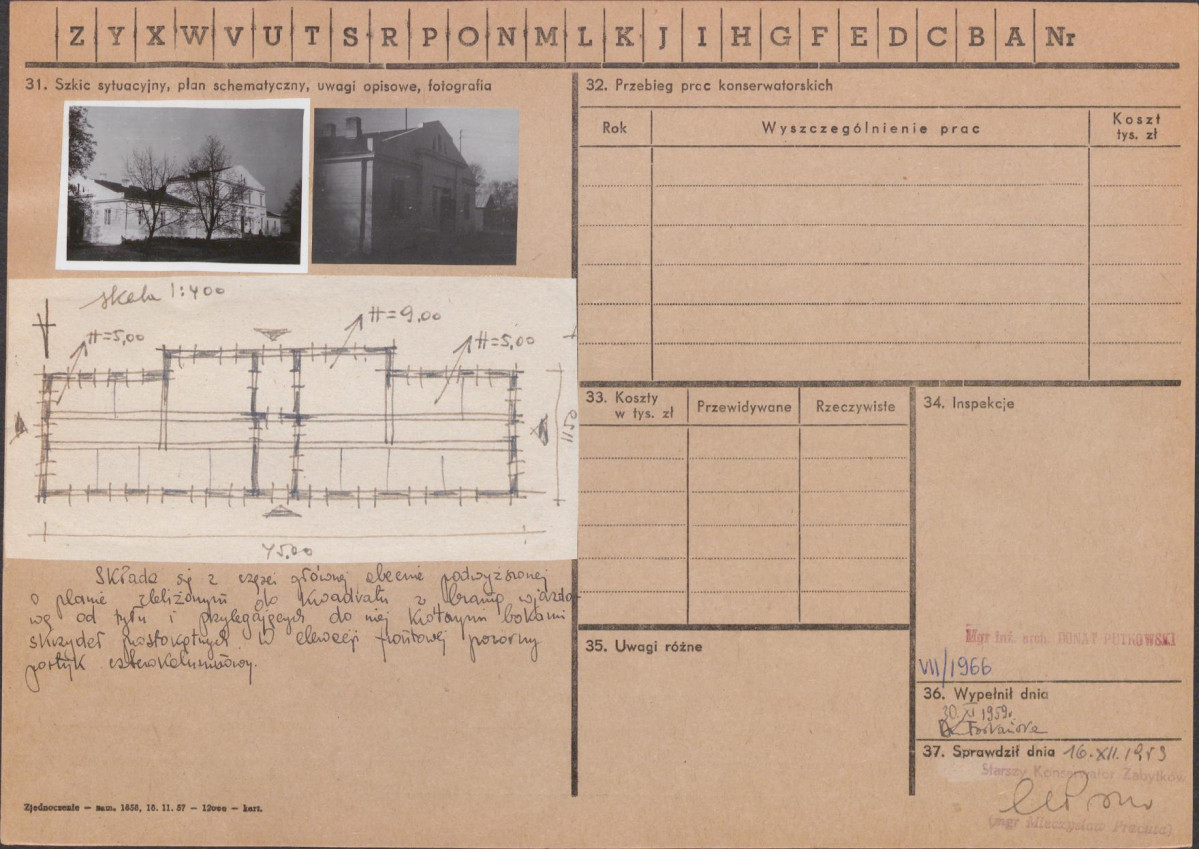 Z Y X W V U T S R P O N M L K J I H G F E D C B A Nr
31. Szkic sytuacyjny, plan schematyczny, uwagi opisowe, fotografia
skala 1:400
H=5,00
H=9,00
H=5,00
45.00
Składa się z części głównej obecnie podwyższonej
o planie zbliżonym do kwadratu z bramą wjazdo-
wą od tyłu i przylegających do niej krótszym bokami
skrzydeł prostokątnych. W elewacji frontowej pozorny
portyk czterokolumnowy.
Zjednoczenie – zam. 1658, 15. 11. 57 – 12000 – kart.
32. Przebieg prac konserwatorskich
Rok
Wyszczególnienie prac
Koszt
tys. zł
33. Koszty
w tys. zł
Przewidywane
Rzeczywiste
34. Inspekcje
Mgr inż. arch. DONAT PUTKOWSKI
VII/1966
35. Uwagi różne
36. Wypełnił dnia
30. XI 1959r.
37. Sprawdził dnia 16.XII.1959
Starszy Konserwator Zabytków
(mgr Mieczysław